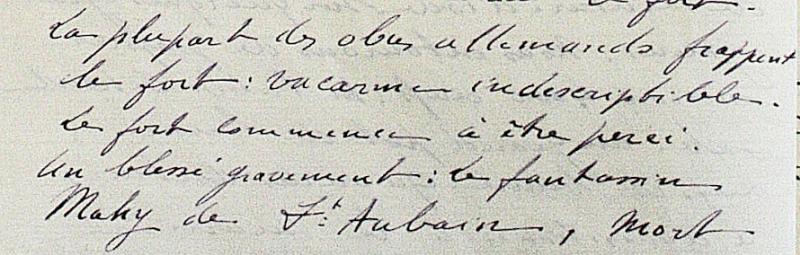 fort.
La plupart des obus allemands frappent
le fort : vacarme indescriptible.
Le fort commence à être percé.
Un blessé gravement : le fantassin
Mahy de St Aubain, mort